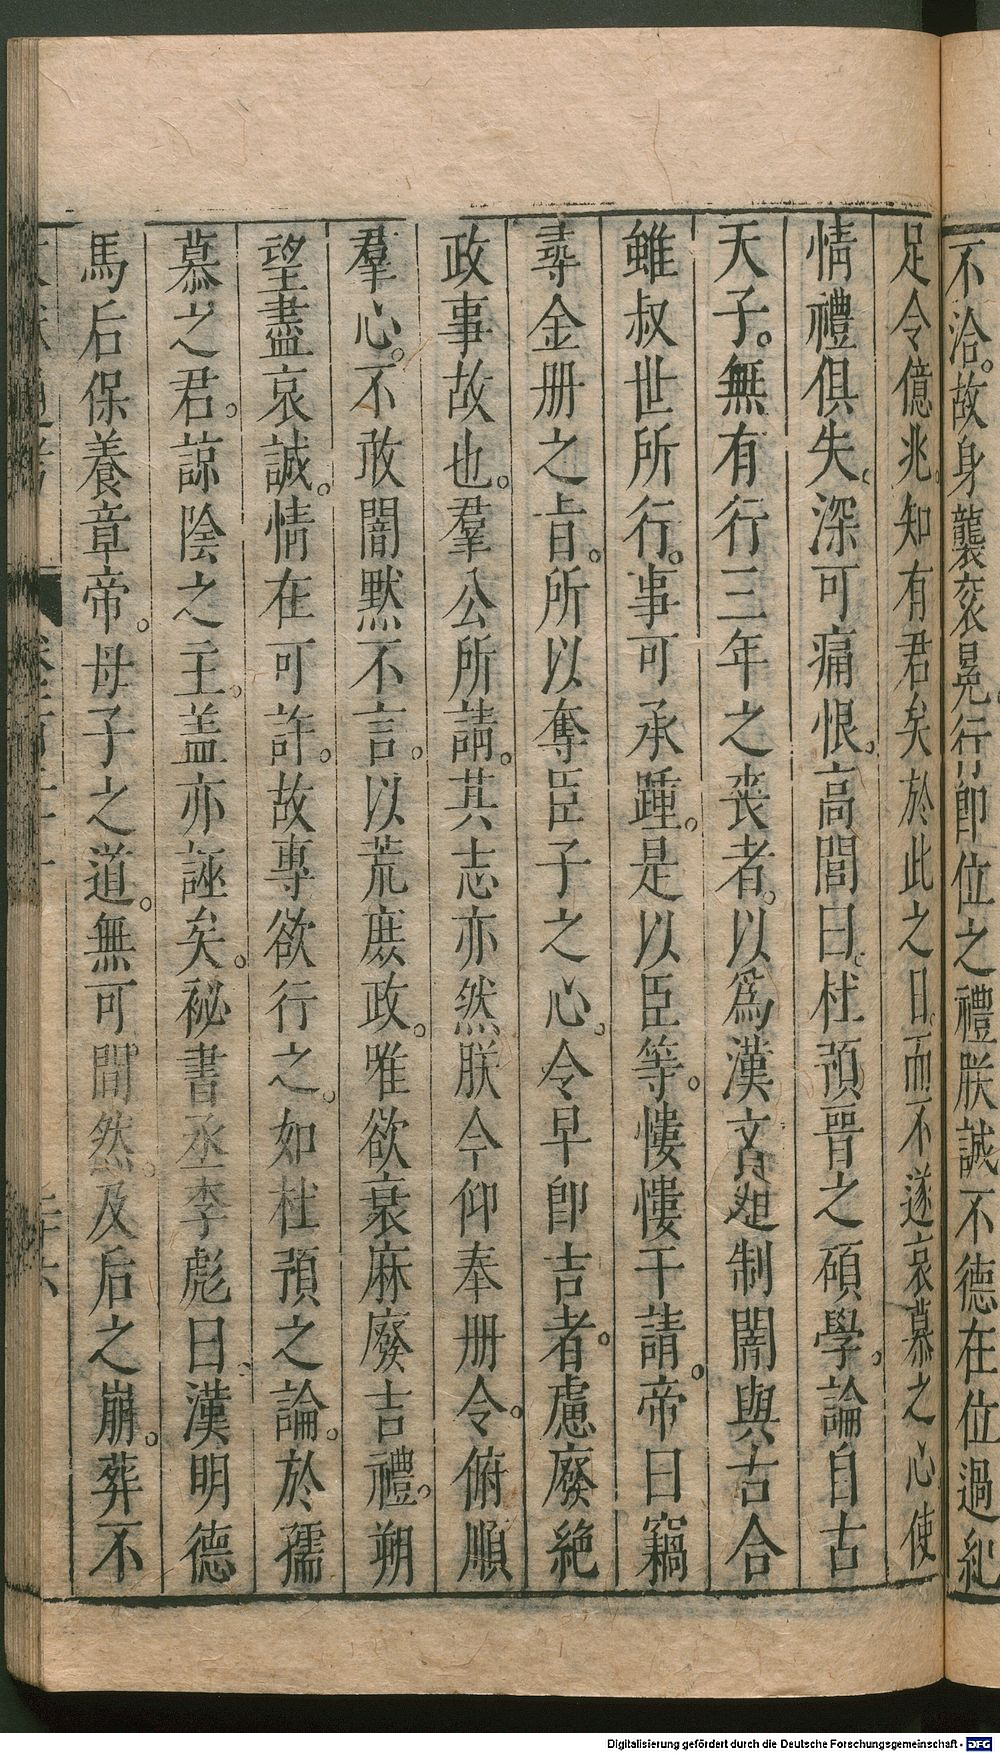 不洽。故身襲衮冕行卽位之禮朕誠不德在位過紀
足令億兆。知有君矣於此之日。而不遂哀慕之心使
情禮俱失。深可痛恨。高閭曰。杜預晉之碩學。論自古
天子。無有行三年之喪者。以爲漢文。制闇與古合
雖叔世所行。事可承踵。是以臣等。慺慺干請。帝曰竊
尋金册之㫖。所以奪臣子之心。令早卽吉者。慮廢絶
政事故也。羣公所請。其志亦然朕今仰奉册令。俯順
羣心。不敢闇默不言。以荒庶政。唯欲衰麻廢吉禮。朔
望盡哀誠。情在可許。故專欲行之。如杜預之論。於孺
慕之君。諒陰之主。盖亦誣矣。祕書丞李彪曰。漢明德
馬后保養章帝。母子之道。無可間然。及后之崩。葬不
Digitalisierung gefördert durch die Deutsche Forschungsgemeinschaft - DFG